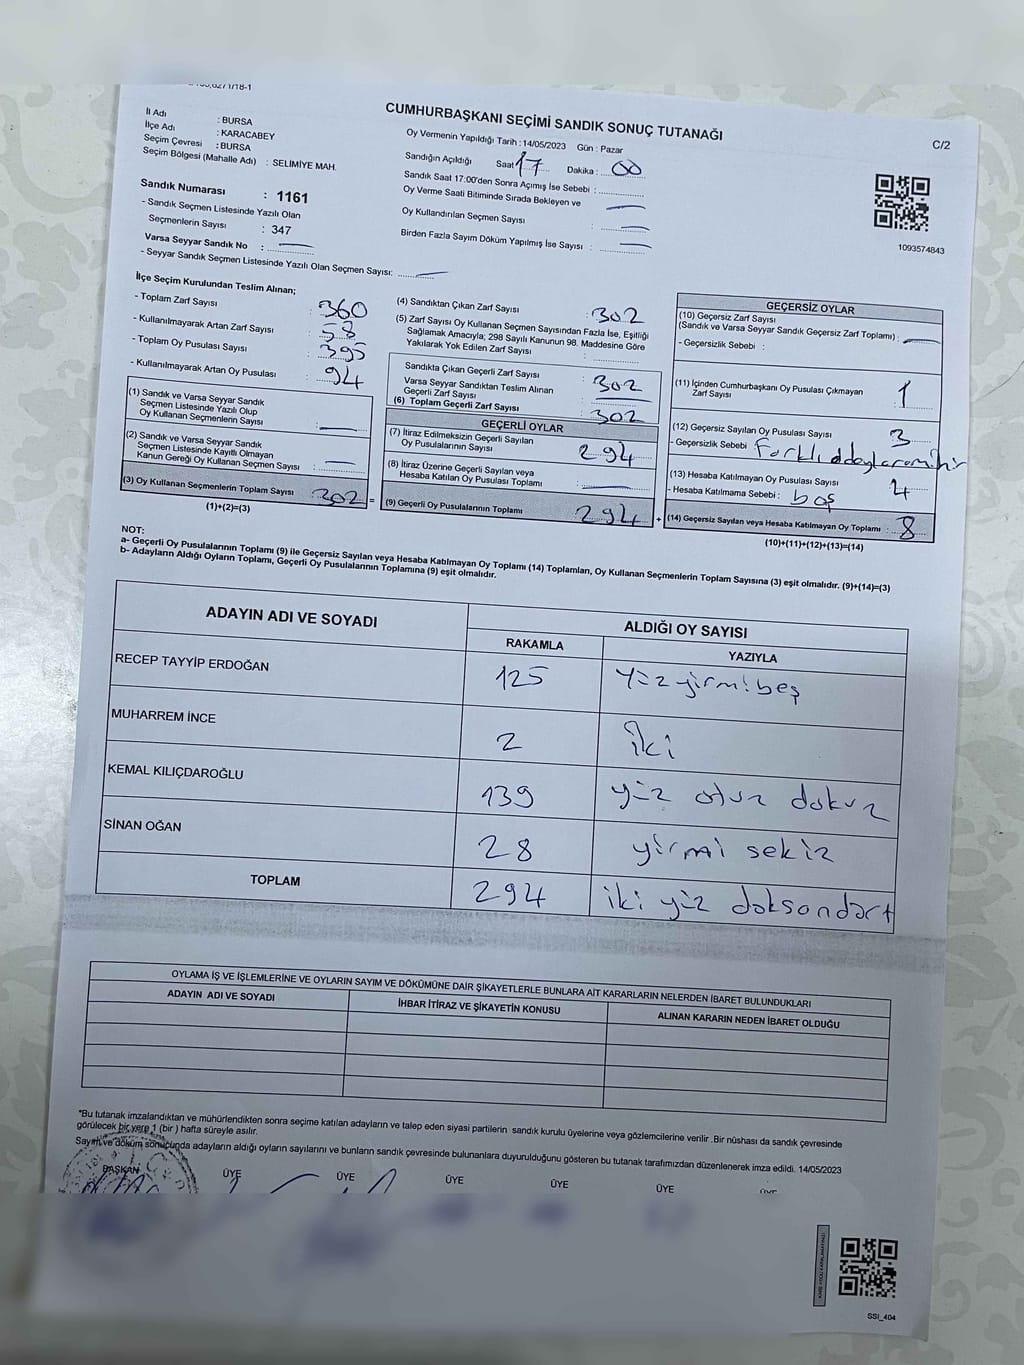 CUMHURBAŞKANI SEÇİMİ SANDIK SONUÇ TUTANAĞI
C/2
İl Adı : BURSA
İlçe Adı : KARACABEY
Seçim Çevresi : BURSA
Seçim Bölgesi (Mahalle Adı) : SELİMİYE MAH.
Sandık Numarası : 1161
- Sandık Seçmen Listesinde Yazılı Olan
Seçmenlerin Sayısı : 347
Varsa Seyyar Sandık No :
- Seyyar Sandık Seçmen Listesinde Yazılı Olan Seçmen Sayısı:
Oy Vermenin Yapıldığı Tarih : 14/05/2023 Gün : Pazar
Sandığın Açıldığı Saat 17 Dakika : 00
Sandık Saat 17:00'den Sonra Açımış İse Sebebi :
Oy Verme Saati Bitiminde Sırada Bekleyen ve
Oy Kullandırılan Seçmen Sayısı
Birden Fazla Sayım Döküm Yapılmış İse Sayısı :
1093574843
İlçe Seçim Kurulundan Teslim Alınan;
- Toplam Zarf Sayısı : 360
- Kullanılmayarak Artan Zarf Sayısı : 58
- Toplam Oy Pusulası Sayısı : 395
- Kullanılmayarak Artan Oy Pusulası : 94
(1) Sandık ve Varsa Seyyar Sandık
Seçmen Listesinde Yazılı Olup
Oy Kullanan Seçmenlerin Sayısı :
(2) Sandık ve Varsa Seyyar Sandık
Seçmen Listesinde Kayıtlı Olmayan
Kanun Gereği Oy Kullanan Seçmen Sayısı :
(3) Oy Kullanan Seçmenlerin Toplam Sayısı 302 =
(1)+(2)=(3)
(4) Sandıktan Çıkan Zarf Sayısı : 302
(5) Zarf Sayısı Oy Kullanan Seçmen Sayısından Fazla İse, Eşitliği
Sağlamak Amacıyla; 298 Sayılı Kanunun 98. Maddesine Göre
Yakılarak Yok Edilen Zarf Sayısı :
Sandıkta Çıkan Geçerli Zarf Sayısı : 302
Varsa Seyyar Sandıktan Teslim Alınan
Geçerli Zarf Sayısı :
(6) Toplam Geçerli Zarf Sayısı : 302
GEÇERLİ OYLAR
(7) İtiraz Edilmeksizin Geçerli Sayılan
Oy Pusulalarının Sayısı : 294
(8) İtiraz Üzerine Geçerli Sayılan veya
Hesaba Katılan Oy Pusulası Toplamı :
(9) Geçerli Oy Pusulalarının Toplamı : 294 +
GEÇERSİZ OYLAR
(10) Geçersiz Zarf Sayısı
(Sandık ve Varsa Seyyar Sandık Geçersiz Zarf Toplamı) :
- Geçersizlik Sebebi :
(11) İçinden Cumhurbaşkanı Oy Pusulası Çıkmayan
Zarf Sayısı : 1
(12) Geçersiz Sayılan Oy Pusulası Sayısı : 3
- Geçersizlik Sebebi :
(13) Hesaba Katılmayan Oy Pusulası Sayısı : 4
- Hesaba Katılmama Sebebi : boş
(14) Geçersiz Sayılan veya Hesaba Katılmayan Oy Toplamı : 8
(10)+(11)+(12)+(13)=(14)
NOT:
a- Geçerli Oy Pusulalarının Toplamı (9) ile Geçersiz Sayılan veya Hesaba Katılmayan Oy Toplamı (14) Toplamları, Oy Kullanan Seçmenlerin Toplam Sayısına (3) eşit olmalıdır. (9)+(14)=(3)
b- Adayların Aldığı Oyların Toplamı, Geçerli Oy Pusulalarının Toplamına (9) eşit olmalıdır.
ADAYIN ADI VE SOYADI
ALDIĞI OY SAYISI
RAKAMLA YAZIYLA
RECEP TAYYİP ERDOĞAN 125 yüz yirmi beş
MUHARREM İNCE 2 iki
KEMAL KILIÇDAROĞLU 139 yüz otuz dokuz
SİNAN OĞAN 28 yirmi sekiz
TOPLAM 294 iki yüz doksandört
OYLAMA İŞ VE İŞLEMLERİNE VE OYLARIN SAYIM VE DÖKÜMÜNE DAİR ŞİKAYETLERLE BUNLARA AİT KARARLARIN NELERDEN İBARET BULUNDUKLARI
ADAYIN ADI VE SOYADI İHBAR İTİRAZ VE ŞİKAYETİN KONUSU ALINAN KARARIN NEDEN İBARET OLDUĞU
"Bu tutanak imzalandıktan ve mühürlendikten sonra seçime katılan adayların ve talep eden siyasi partilerin sandık kurulu üyelerine veya gözlemcilerine verilir .Bir nüshası da sandık çevresinde
görülecek bir yere 1 (bir ) hafta süreyle asılır.
Sayım ve döküm sonucunda adayların aldığı oyların sayılarını ve bunların sandık çevresinde bulunanlara duyurulduğunu gösteren bu tutanak tarafımızdan düzenlenerek imza edildi. 14/05/2023
BAŞKAN ÜYE ÜYE ÜYE ÜYE ÜYE
SSI_404